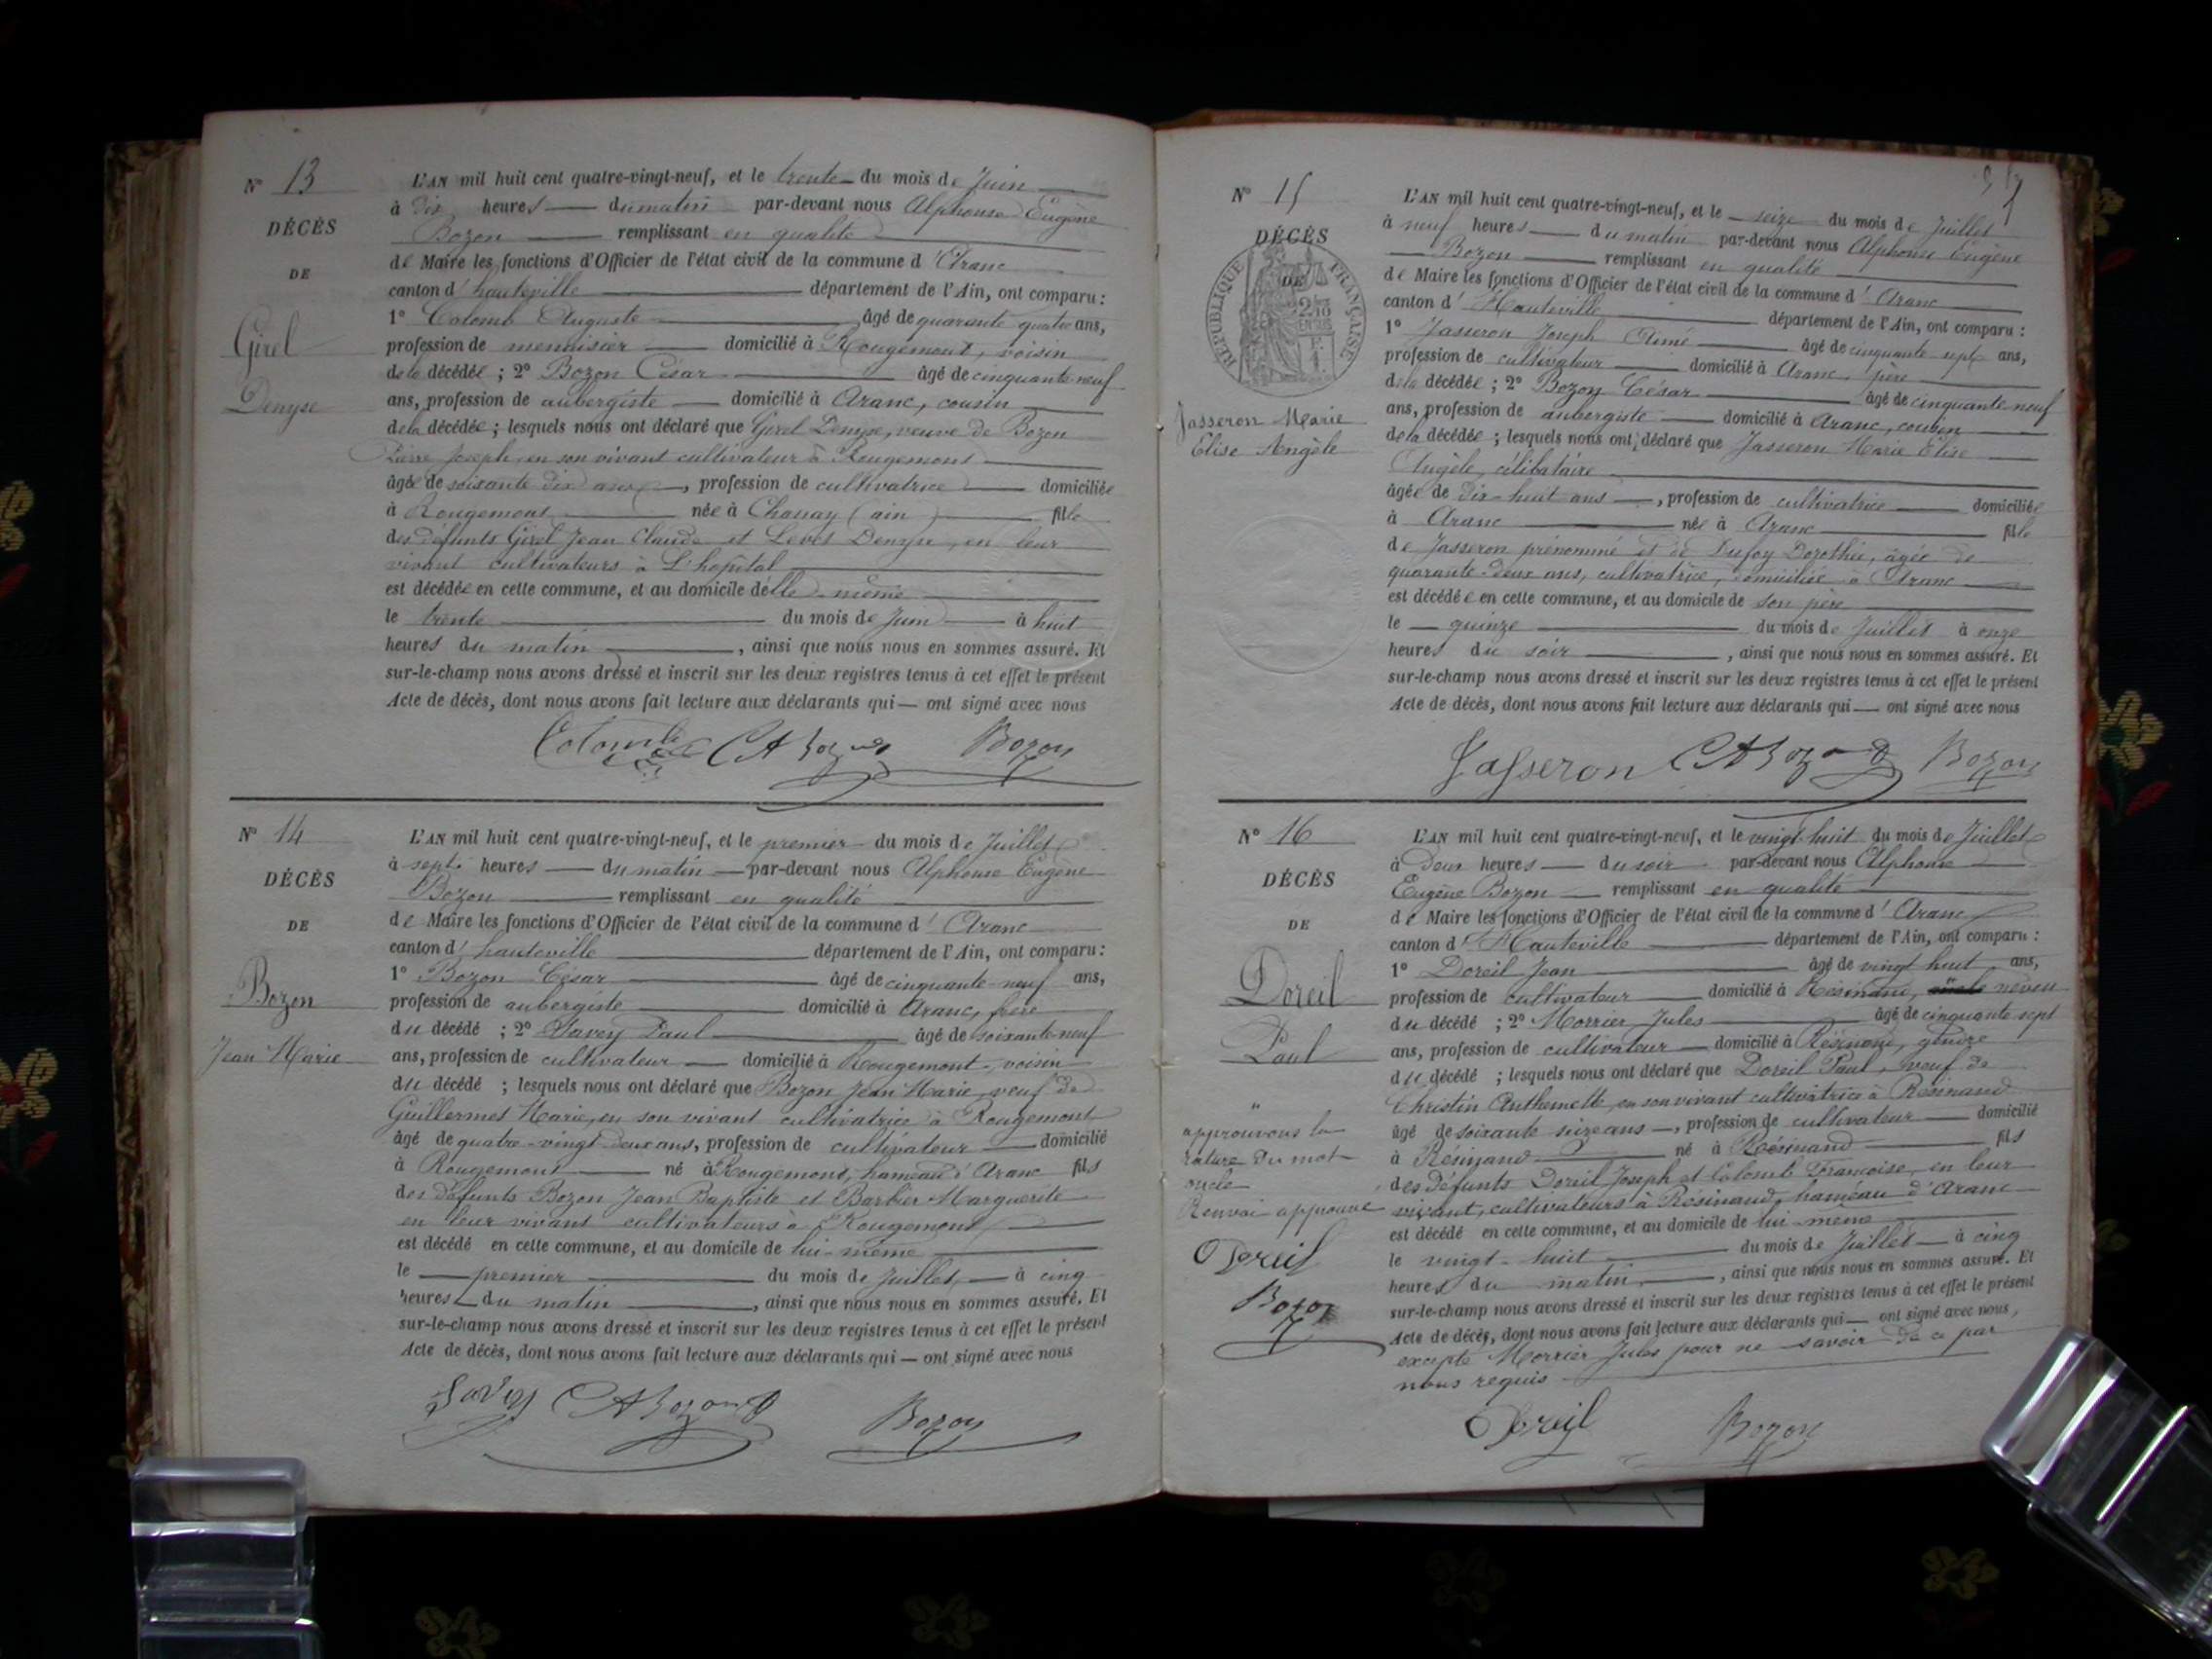 N° 13
DÉCÈS
DE
Girel
Denyse
L'AN mil huit cent quatre-vingt-neuf, et le trente du mois de Juin
à dix heures du matin par-devant nous Alphonse Eugène
Bozon remplissant en qualité
de Maire les fonctions d'Officier de l'état civil de la commune d'Aranc
canton d'hauteville département de l'Ain, ont comparu :
1° Colomb Auguste âgé de quarante quatre ans,
profession de menuisier domicilié à Rougemont, voisin
de la décédée ; 2° Bozon César âgé de cinquante-neuf
ans, profession de aubergiste domicilié à Aranc, cousin
de la décédée ; lesquels nous ont déclaré que Girel Denyse, veuve de Bozon
Pierre Joseph, en son vivant cultivateur à Rougemont
âgée de soixante dix ans, profession de cultivatrice domiciliée
à Rougemont née à Chanay (ain) fille
des défunts Girel Jean Claude et Levet Denyse, en leur
vivant cultivateurs à L'hopital
est décédée en cette commune, et au domicile d'elle même
le trente du mois de Juin à huit
heures du matin, ainsi que nous nous en sommes assuré. Et
sur-le-champ nous avons dressé et inscrit sur les deux registres tenus à cet effet le présent
Acte de décès, dont nous avons fait lecture aux déclarants qui — ont signé avec nous
Colomb CABozon Bozon
N° 14
DÉCÈS
DE
Bozon
Jean Marie
L'AN mil huit cent quatre-vingt-neuf, et le premier du mois de Juillet
à sept heures du matin par-devant nous Alphonse Eugène
Bozon remplissant en qualité
de Maire les fonctions d'Officier de l'état civil de la commune d'Aranc
canton d'hauteville département de l'Ain, ont comparu :
1° Bozon César âgé de cinquante-neuf ans,
profession de aubergiste domicilié à Aranc, frère
du décédé ; 2° Savey Paul âgé de soixante-neuf
ans, profession de cultivateur domicilié à Rougemont, voisin
du décédé ; lesquels nous ont déclaré que Bozon Jean Marie, veuf de
Guillermet Marie, en son vivant cultivatrice à Rougemont
âgé de quatre-vingt deux ans, profession de cultivateur domicilié
à Rougemont né à Rougemont, hameau d'Aranc fils
des défunts Bozon Jean Baptiste et Barbier Marguerite
en leur vivant cultivateurs à Rougemont
est décédé en cette commune, et au domicile de lui-même
le premier du mois de Juillet à cinq
heures du matin, ainsi que nous nous en sommes assuré. Et
sur-le-champ nous avons dressé et inscrit sur les deux registres tenus à cet effet le présent
Acte de décès, dont nous avons fait lecture aux déclarants qui — ont signé avec nous
Savey CABozon Bozon
N° 15
DÉCÈS
DE
RÉPUBLIQUE FRANÇAISE
Jasseron Marie
Elise Angèle
L'AN mil huit cent quatre-vingt-neuf, et le seize du mois de Juillet
à neuf heures du matin par-devant nous Alphonse Eugène
Bozon remplissant en qualité
de Maire les fonctions d'Officier de l'état civil de la commune d'Aranc
canton d'Hauteville département de l'Ain, ont comparu :
1° Jasseron Joseph Aimé âgé de cinquante-sept ans,
profession de cultivateur domicilié à Aranc, père
de la décédée ; 2° Bozon César âgé de cinquante-neuf
ans, profession de aubergiste domicilié à Aranc, cousin
de la décédée ; lesquels nous ont déclaré que Jasseron Marie Elise
Angèle, célibataire
âgée de dix-huit ans, profession de cultivatrice domiciliée
à Aranc née à Aranc fille
de Jasseron prénommé et de Dufoy Dorothée, âgée de
quarante-deux ans, cultivatrice, domiciliée à Aranc
est décédée en cette commune, et au domicile de son père
le quinze du mois de Juillet à onze
heures du soir, ainsi que nous nous en sommes assuré. Et
sur-le-champ nous avons dressé et inscrit sur les deux registres tenus à cet effet le présent
Acte de décès, dont nous avons fait lecture aux déclarants qui — ont signé avec nous
Jasseron CABozon Bozon
N° 16
DÉCÈS
DE
Doreil
Paul
"
approuvons la
rature du mot
oncle
Renvoi approuvé
Doreil
Bozon
L'AN mil huit cent quatre-vingt-neuf, et le vingt-huit du mois de Juillet
à deux heures du soir par-devant nous Alphonse
Eugène Bozon remplissant en qualité
de Maire les fonctions d'Officier de l'état civil de la commune d'Aranc
canton d'Hauteville département de l'Ain, ont comparu :
1° Doreil Jean âgé de vingt huit ans,
profession de cultivateur domicilié à Résinand, oncle neveu
du décédé ; 2° Morrier Jules âgé de cinquante sept
ans, profession de cultivateur domicilié à Résinand, gendre
du décédé ; lesquels nous ont déclaré que Doreil Paul, veuf de
Christin Anthemette, en son vivant cultivatrice à Résinand
âgé de soixante seize ans, profession de cultivateur domicilié
à Résinand né à Résinand fils
des défunts Doreil Joseph et Colomb Françoise, en leur
vivant, cultivateurs à Résinand, hameau d'Aranc
est décédé en cette commune, et au domicile de lui-même
le vingt-huit du mois de Juillet à cinq
heures du matin, ainsi que nous nous en sommes assuré. Et
sur-le-champ nous avons dressé et inscrit sur les deux registres tenus à cet effet le présent
Acte de décès, dont nous avons fait lecture aux déclarants qui — ont signé avec nous,
excepté Morrier Jules pour ne savoir de ce par
nous requis
Doreil Bozon